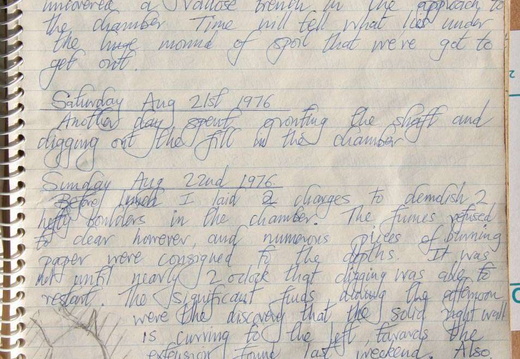 uncovered a vadose trench in the approach to
the chamber Time will tell what lies under
the huge mound of spoil that we've got to
get out.
Saturday Aug 21st 1976
Another day spent grouting the shaft and
digging out the fill in the chamber
Sunday Aug 22nd 1976
Before lunch I laid 2 charges to demolish 2
hefty boulders in the chamber. The fumes refused
to clear however, and numerous pieces of burning
paper were consigned to the depths. It was
not until nearly 2 oclock that digging was able to
restart. The significant finds during the afternoon
were the discovery that the solid right wall
is curving to the left towards the
extension found last weekend. Also